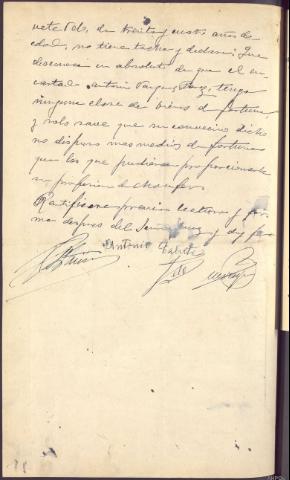 de treinta y cuatro años de
edad, no tiene tacha y declara: Que
desconoce en absoluto de que el en
cartado Antonio Vazquez tenga
ninguna clase de bienes de fortuna
y solo sabe que su convecino dicho
no dispone mas medios de fortuna
que los que pudiera proporcionarle
su profesion de chaufer.
Ratificase previa lectura y fir
ma despues del Sr. Juez y doy fe
Antonio